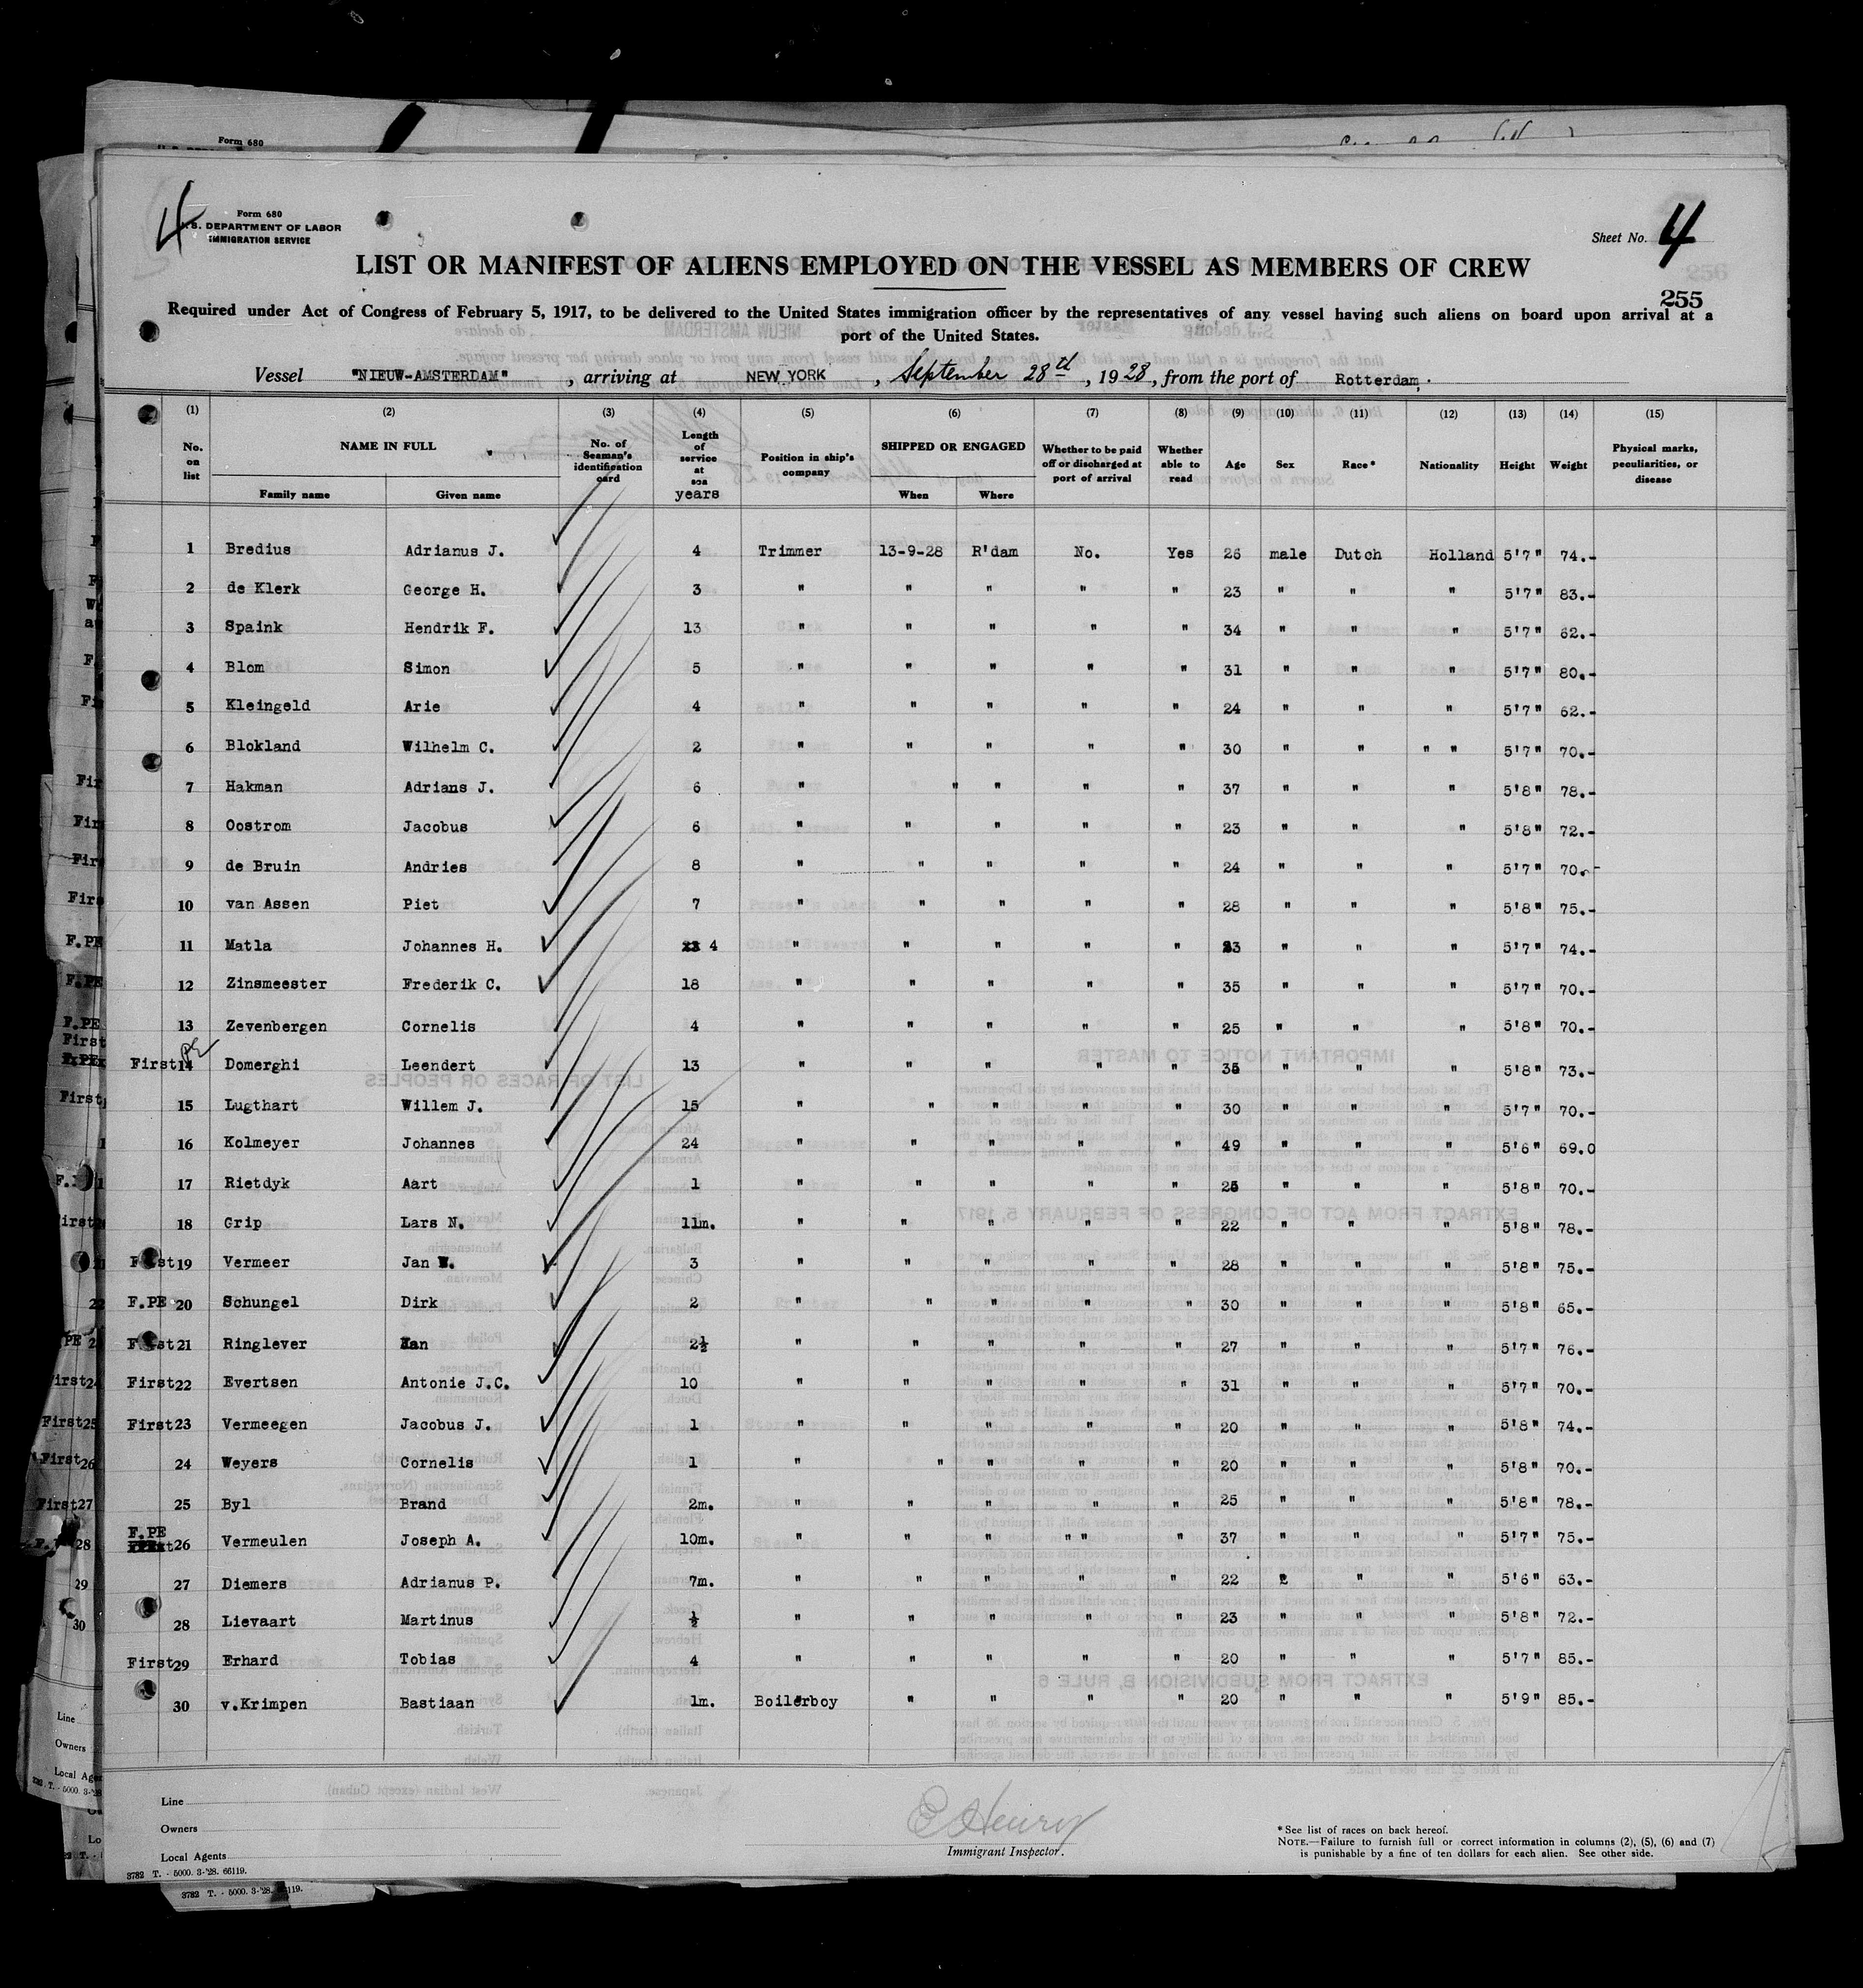 Form 680
4
U.S. DEPARTMENT OF LABOR
IMMIGRATION SERVICE
Form 680
Sheet No. 4
LIST OR MANIFEST OF ALIENS EMPLOYED ON THE VESSEL AS MEMBERS OF CREW
255
Required under Act of Congress of February 5, 1917, to be delivered to the United States immigration officer by the representatives of any vessel having such aliens on board upon arrival at a
port of the United States.
Vessel "NIEUW-AMSTERDAM" , arriving at NEW YORK , September 28th , 1928, from the port of Rotterdam.
(1) (2) (3) (4) (5) (6) (7) (8) (9) (10) (11) (12) (13) (14) (15)
No. on list NAME IN FULL Family name Given name No. of Seaman's identification card Length of service at sea years Position in ship's company SHIPPED OR ENGAGED When Where Whether to be paid off or discharged at port of arrival Whether able to read Age Sex Race* Nationality Height Weight Physical marks, peculiarities, or disease
1 Bredius Adrianus J. 4 Trimmer 13-9-28 R'dam No. Yes 26 male Dutch Holland 5'7" 74.-
2 de Klerk George H. 3 " " " " " 23 " " " 5'7" 83.-
3 Spaink Hendrik F. 13 " " " " " 34 " " " 5'7" 62.-
4 Blom Simon 5 " " " " " 31 " " " 5'7" 80.-
5 Kleingeld Arie 4 " " " " " 24 " " " 5'7" 62.-
6 Blokland Wilhelm C. 2 " " " " " 30 " " " " 5'7" 70.-
7 Hakman Adrians J. 6 " " " " " 37 " " " 5'8" 78.-
8 Oostrom Jacobus 6 " " " " " 23 " " " 5'8" 72.-
9 de Bruin Andries 8 " " " " " 24 " " " 5'7" 70.-
10 van Assen Piet 7 " " " " " 28 " " " 5'8" 75.-
11 Matla Johannes H. 4 " " " " " 23 " " " 5'7" 74.-
12 Zinsmeester Frederik C. 18 " " " " " 35 " " " 5'7" 70.-
13 Zevenbergen Cornelis 4 " " " " " 25 " " " 5'8" 70.-
PE
First 14 Domerghi Leendert 13 " " " " " 35 " " " 5'8" 73.-
15 Lugthart Willem J. 15 " " " " " 30 " " " 5'7" 70.-
16 Kolmeyer Johannes 24 " " " " " 49 " " " 5'6" 69.0
17 Rietdyk Aart 1 " " " " " 25 " " " 5'8" 70.-
18 Grip Lars N. 11m. " " " " " 22 " " " 5'8" 78.-
First 19 Vermeer Jan W. 3 " " " " " 28 " " " 5'8" 75.-
F.PE 20 Schungel Dirk 2 " " " " " 30 " " " 5'8" 65.-
First 21 Ringlever Jan 2½ " " " " " 27 " " " 5'7" 76.-
First 22 Evertsen Antonie J.C. 10 " " " " " 31 " " " 5'7" 70.-
First 23 Vermeegen Jacobus J. 1 " " " " " 20 " " " 5'8" 74.-
24 Weyers Cornelis 1 " " " " " 20 " " " 5'8" 70.-
25 Byl Brand 2m. " " " " " 25 " " " 5'8" 78.-
F.PE 26 Vermeulen Joseph A. 10m. " " " " " " 37 " " " 5'7" 75.-
27 Diemers Adrianus P. 7m. " " " " " 22 " " " 5'6" 63.-
28 Lievaart Martinus ½ " " " " " 23 " " " 5'8" 72.-
First 29 Erhard Tobias 4 " " " " " 20 " " " 5'7" 85.-
30 v.Krimpen Bastiaan 1m. Boilerboy " " " " 20 " " " 5'9" 85.-
Line
Owners
Local Agents
3782 T. - 5000. 3-'28. 66119.
E Henry
Immigrant Inspector.
*See list of races on back hereof.
NOTE.—Failure to furnish full or correct information in columns (2), (5), (6) and (7)
is punishable by a fine of ten dollars for each alien. See other side.
3782 T. - 5000. 3-'28. 66119.